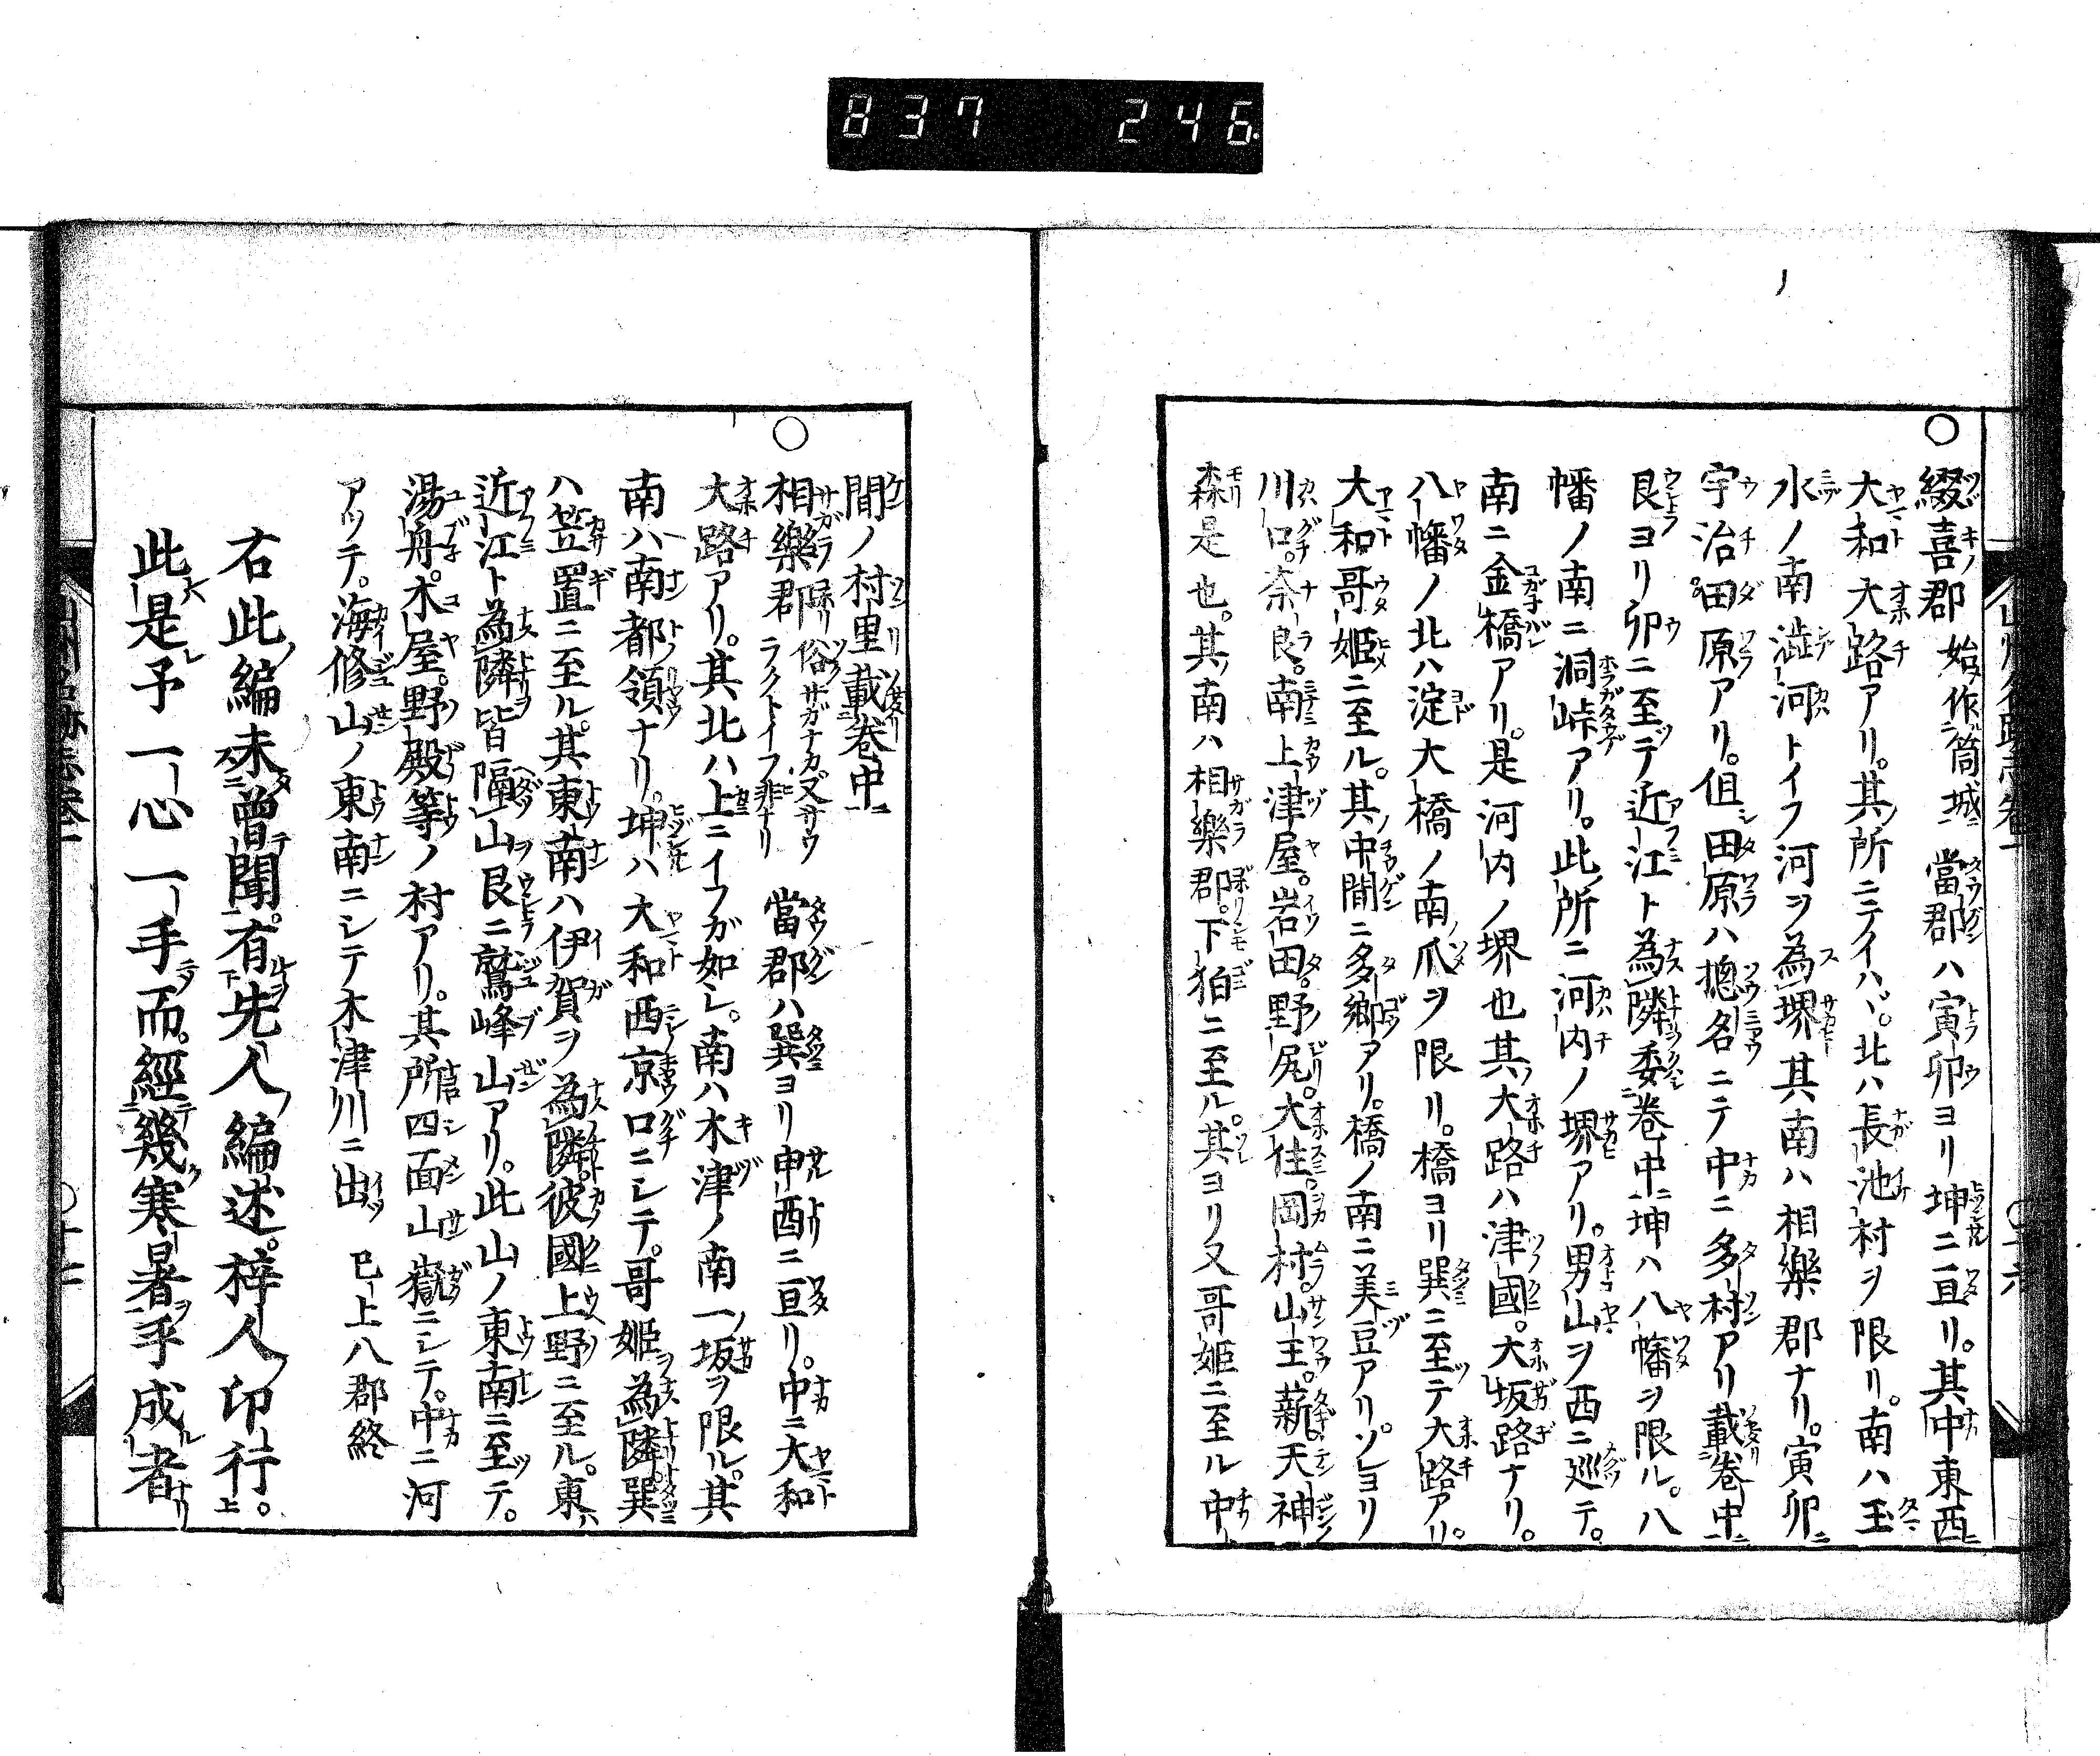 837 246
○綴喜郡 始作筒城ニ 當郡ハ寅卯ヨリ坤ニ亘リ。其中東西ニ
大和大路アリ。其所ニテイハヾ。北ハ長池村ヲ限リ。南ハ玉
水ノ南澁河トイフ河ヲ為堺其南ハ相樂郡ナリ。寅卯ニ
宇治田原アリ。但田原ハ摠名ニテ中ニ多村アリ載巻中ニ
艮ヨリ卯ニ至テ近江ト為隣委巻中ニ坤ハ八幡ヲ限ル。八
幡ノ南ニ洞峠アリ。此所ニ河内ノ堺アリ。男山ヲ西ニ巡テ。
南ニ金橋アリ。是河内ノ堺也其大路ハ津國。大坂路ナリ。
八幡ノ北ハ淀大橋ノ南爪ヲ限リ。橋ヨリ巽ニ至テ大路アリ。
大和哥姫ニ至ル。其中間ニ多郷アリ。橋ノ南ニ美豆アリ。ソレヨリ
川口。奈良。南上津屋。岩田。野尻。大住。岡村。山王。薪天神
森是也。其南ハ相樂郡。下狛ニ至ル。其ヨリ又哥姫ニ至ル中
間ノ村里載巻中ニ
○相樂郡 俗サガナカ又サウラクトイフ非ナリ 當郡ハ巽ヨリ申酉ニ亘リ。中ニ大和
大路アリ。其北ハ上ニイフガ如シ。南ハ木津ノ南一坂ヲ限ル。其
南ハ南都領ナリ。坤ハ大和西京口ニシテ。哥姫為隣。巽
ハ笠置ニ至ル。其東南ハ伊賀ヲ為隣。彼國上野ニ至ル。東ハ
近江ト為隣皆隔山艮ニ鷲峰山アリ。此山ノ東南ニ至テ。
湯舟。木屋。野殿等ノ村アリ。其所四面山嶽ニシテ。中ニ河
アツテ。海修山ノ東南ニシテ木津川ニ出 已上八郡終
右此編未曾聞。有先人編述。梓人印行。
此是予一心一手而。經幾寒暑乎成者